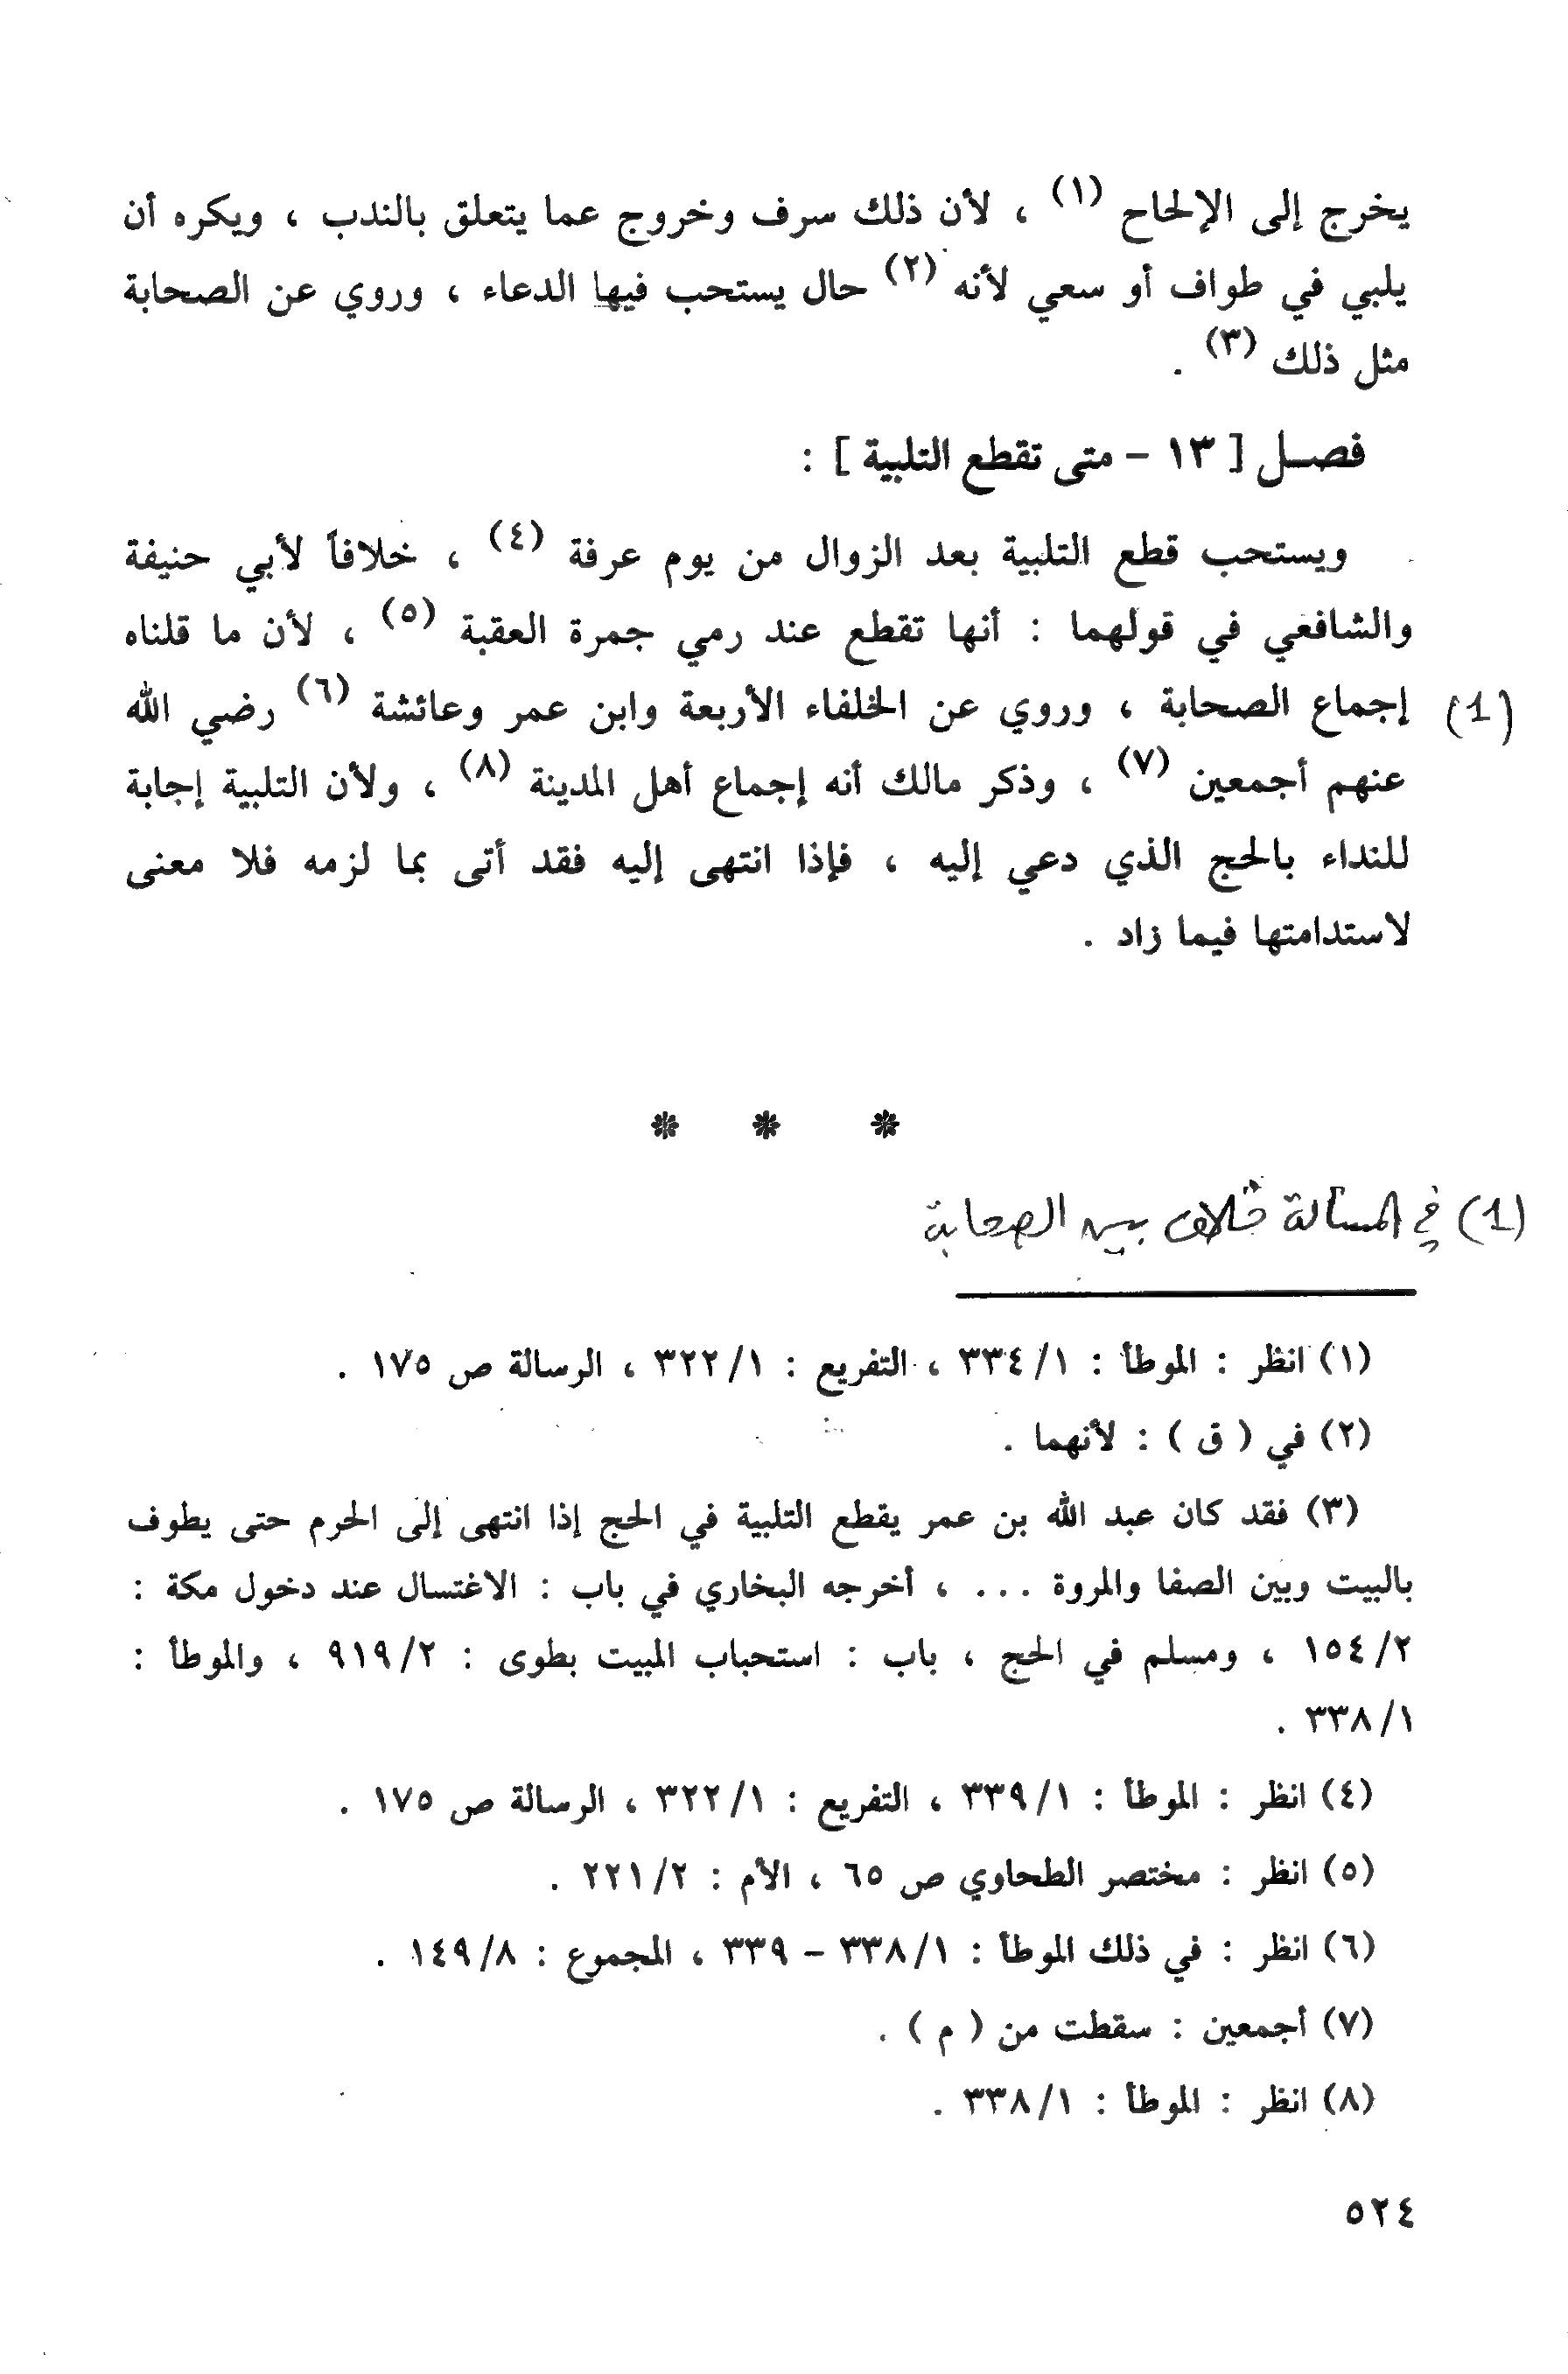 يخرج إلى الإلحاح (١) ، لأن ذلك سرف وخروج عما يتعلق بالندب ، ويكره أن
يلبي في طواف أو سعي لأنه (٢) حال يستحب فيها الدعاء ، وروي عن الصحابة
مثل ذلك (٣) .
فصل [ ١٣ – متى تقطع التلبية ] :
ويستحب قطع التلبية بعد الزوال من يوم عرفة (٤) ، خلافاً لأبي حنيفة
والشافعي في قولهما : أنها تقطع عند رمي جمرة العقبة (٥) ، لأن ما قلناه
(1) إجماع الصحابة ، وروي عن الخلفاء الأربعة وابن عمر وعائشة (٦) رضي الله
عنهم أجمعين (٧) ، وذكر مالك أنه إجماع أهل المدينة (٨) ، ولأن التلبية إجابة
للنداء بالحج الذي دعي إليه ، فإذا انتهى إليه فقد أتى بما لزمه فلا معنى
لاستدامتها فيما زاد .
* * *
(1) في المسألة خلاف بين الصحابة
(١) انظر : الموطأ : ٣٣٤/١ ، التفريع : ٣٢٢/١ ، الرسالة ص ١٧٥ .
(٢) في ( ق ) : لأنهما .
(٣) فقد كان عبد الله بن عمر يقطع التلبية في الحج إذا انتهى إلى الحرم حتى يطوف
بالبيت وبين الصفا والمروة ... ، أخرجه البخاري في باب : الاغتسال عند دخول مكة :
١٥٤/٢ ، ومسلم في الحج ، باب : استحباب المبيت بطوى : ٩١٩/٢ ، والموطأ :
٣٣٨/١ .
(٤) انظر : الموطأ : ٣٣٩/١ ، التفريع : ٣٢٢/١ ، الرسالة ص ١٧٥ .
(٥) انظر : مختصر الطحاوي ص ٦٥ ، الأم : ٢٢١/٢ .
(٦) انظر : في ذلك الموطأ : ٣٣٨/١ – ٣٣٩ ، المجموع : ١٤٩/٨ .
(٧) أجمعين : سقطت من ( م ) .
(٨) انظر : الموطأ : ٣٣٨/١ .
٥٢٤